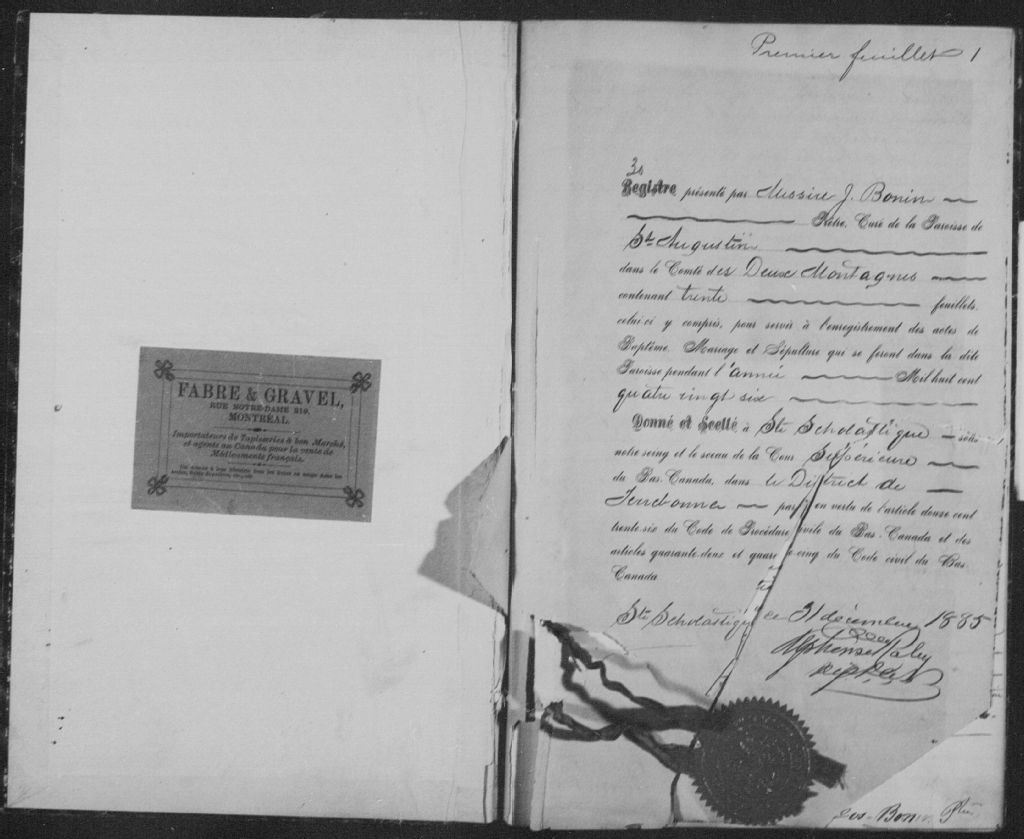 FABRE & GRAVEL,
RUE NOTRE-DAME 219,
MONTRÉAL.
Importateurs de Tapisseries à bon Marché,
et agents au Canada pour la vente de
Médicaments français.
Premier feuillet 1
Registre présenté par Messire J. Bonin
Prêtre, Curé de la Paroisse de
St Augustin
dans le Comté des Deux Montagnes
contenant trente feuillets,
celui-ci y compris, pour servir à l'enregistrement des actes de
Baptême, Mariage et Sépulture qui se feront dans la dite
Paroisse pendant l'année Mil huit cent
quatre vingt six
Donné et Scellé à Ste Scholastique sous
notre seing et le sceau de la Cour Supérieure
du Bas-Canada, dans le District de
Terrebonne en vertu de l'article douze cent
trente-six du Code de Procédure civile du Bas-Canada et des
articles quarante-deux et quarante-cinq du Code civil du Bas-
Canada
Ste Scholastique ce 31 décembre 1885
Alphonse
Bonin Ptre